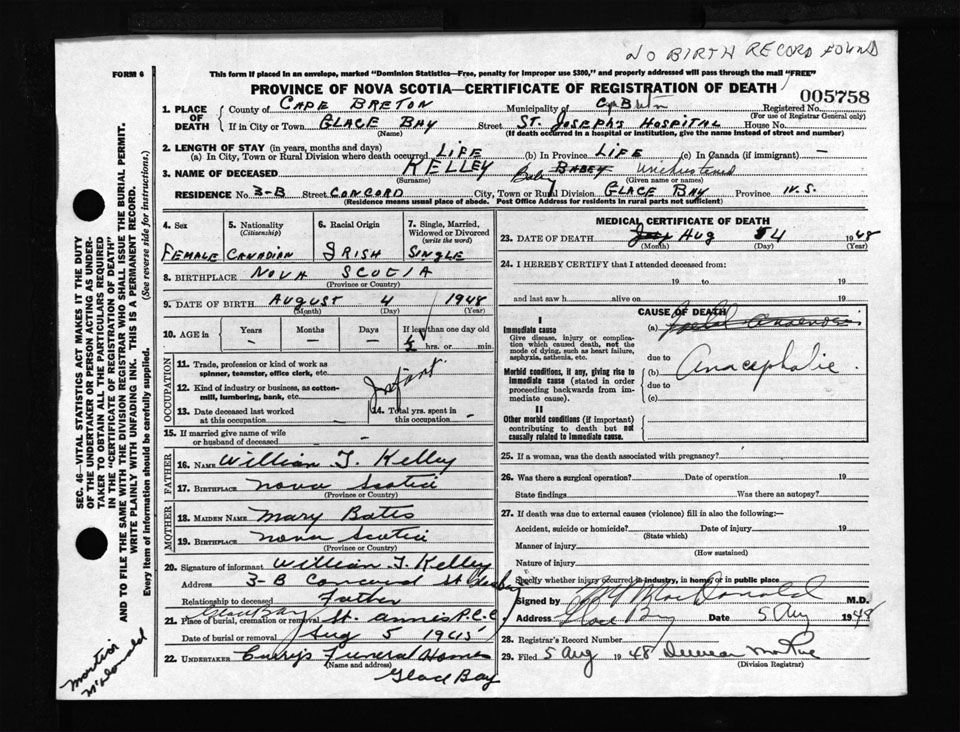 NO BIRTH RECORD FOUND
FORM 6
This form if placed in an envelope, marked "Dominion Statistics—Free, penalty for improper use $300," and properly addressed will pass through the mail "FREE"
PROVINCE OF NOVA SCOTIA—CERTIFICATE OF REGISTRATION OF DEATH
005758
1. PLACE OF DEATH
County of CAPE BRETON Municipality of Registered No.
(For use of Registrar General only)
If in City or Town GLACE BAY Street ST. JOSEPH'S HOSPITAL House No.
(Name) (If death occurred in a hospital or institution, give the name instead of street and number)
2. LENGTH OF STAY (in years, months and days)
(a) In City, Town or Rural Division where death occurred LIFE (b) In Province LIFE (c) In Canada (if immigrant) —
3. NAME OF DECEASED KELLEY Baby BABEY
(Surname) (Given name or names)
RESIDENCE No. 3-B Street CONCORD City, Town or Rural Division GLACE BAY Province N.S.
(Residence means usual place of abode. Post Office Address for residents in rural parts not sufficient)
4. Sex
5. Nationality (Citizenship)
6. Racial Origin
7. Single, Married, Widowed or Divorced (write the word)
FEMALE CANADIAN IRISH SINGLE
8. BIRTHPLACE NOVA SCOTIA
(Province or Country)
9. DATE OF BIRTH AUGUST 4 1948
(Month) (Day) (Year)
10. AGE in Years Months Days If less than one day old
— — — ½ hrs. or min.
OCCUPATION
11. Trade, profession or kind of work as spinner, teamster, office clerk, etc.
12. Kind of industry or business, as cotton-mill, lumbering, bank, etc.
Infant
13. Date deceased last worked at this occupation -
14. Total yrs. spent in this occupation -
15. If married give name of wife or husband of deceased -
FATHER
16. NAME William J. Kelley
17. BIRTHPLACE Nova Scotia
(Province or Country)
MOTHER
18. MAIDEN NAME Mary Bates
19. BIRTHPLACE Nova Scotia
(Province or Country)
20. Signature of informant William J. Kelley
Address 3-B Concord St.
Relationship to deceased Father
Glace Bay
21. Place of burial, cremation or removal St. Annes R.C.C
Date of burial or removal Aug 5 1948
22. UNDERTAKER Curry's Funeral Home
(Name and address)
Glace Bay
MEDICAL CERTIFICATE OF DEATH
23. DATE OF DEATH Aug 4 1948
(Month) (Day) (Year)
24. I HEREBY CERTIFY that I attended deceased from:
19 to 19
and last saw h alive on 19
CAUSE OF DEATH
I
Immediate cause
Give disease, injury or complication which caused death, not the mode of dying, such as heart failure, asphyxia, asthenia, etc.
(a)
due to
Morbid conditions, if any, giving rise to immediate cause (stated in order proceeding backwards from immediate cause).
(b) Anacephalie.
due to
(c)
II
Other morbid conditions (if important) contributing to death but not causally related to immediate cause.
25. If a woman, was the death associated with pregnancy?
26. Was there a surgical operation? Date of operation 19
State findings Was there an autopsy?
27. If death was due to external causes (violence) fill in also the following:—
Accident, suicide or homicide? Date of injury 19
(State which)
Manner of injury
(How sustained)
Nature of injury
Specify whether injury occurred in industry, in home, or in public place
Signed by MacDonald M.D.
Address Glace Bay Date 5 Aug 1948
28. Registrar's Record Number
29. Filed 5 Aug 1948
(Division Registrar)
SEC. 46—VITAL STATISTICS ACT MAKES IT THE DUTY OF THE UNDERTAKER OR PERSON ACTING AS UNDERTAKER TO OBTAIN ALL THE PARTICULARS REQUIRED IN THE "CERTIFICATE OF REGISTRATION OF DEATH"
AND TO FILE THE SAME WITH THE DIVISION REGISTRAR WHO SHALL ISSUE THE BURIAL PERMIT.
WRITE PLAINLY WITH UNFADING INK. THIS IS A PERMANENT RECORD.
Every item of information should be carefully supplied. (See reverse side for instructions.)